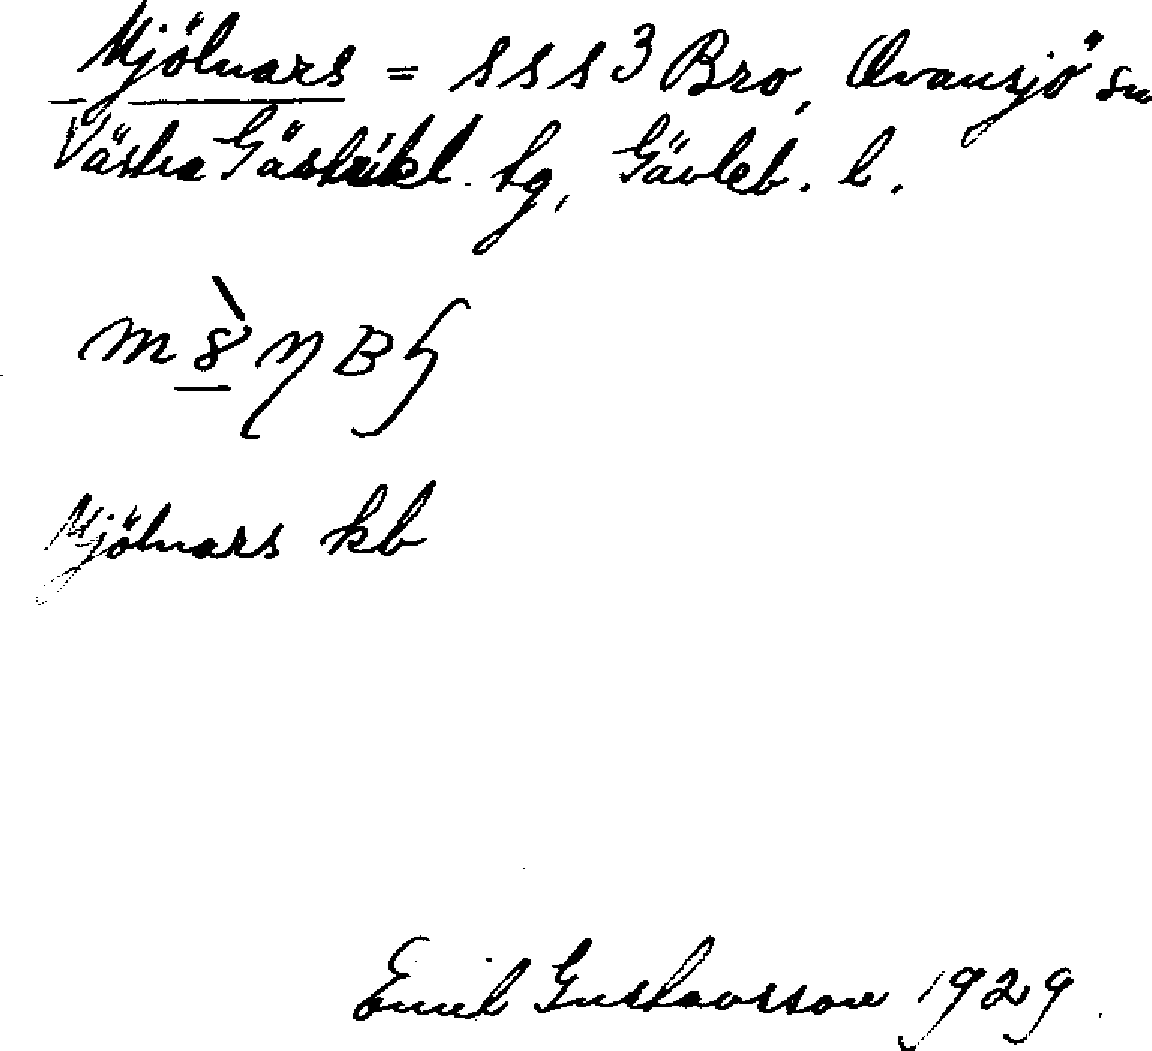 Mjölnars = s s s 3 Bro, Ovansjö sn
Västra Gästrikl. hg, Gävleb. l.
Mjölnars kb
Emil Gustavsson 1929.